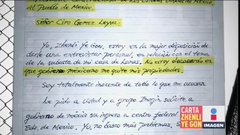 el Pueblo de México.
Señor Ciro Gomez Leyva.
Yo, Zhenli Ye Gon, estoy en la mejor disposición de
darle una entrevista personal, en relación con el tema
de la subasta de mi casa de Lomas. No estoy de acuerdo en
que gobierno mexicano me quite mis propiedades.
Soy totalmente inocente de todo lo que me acusan.
Le pido a Usted y a grupo Imagen solicite a
gobierno de México su ingreso a centro federal
Edo. de México. Yo, no tengo más
CARTA
ZHENLI
YE GON
IMAGEN